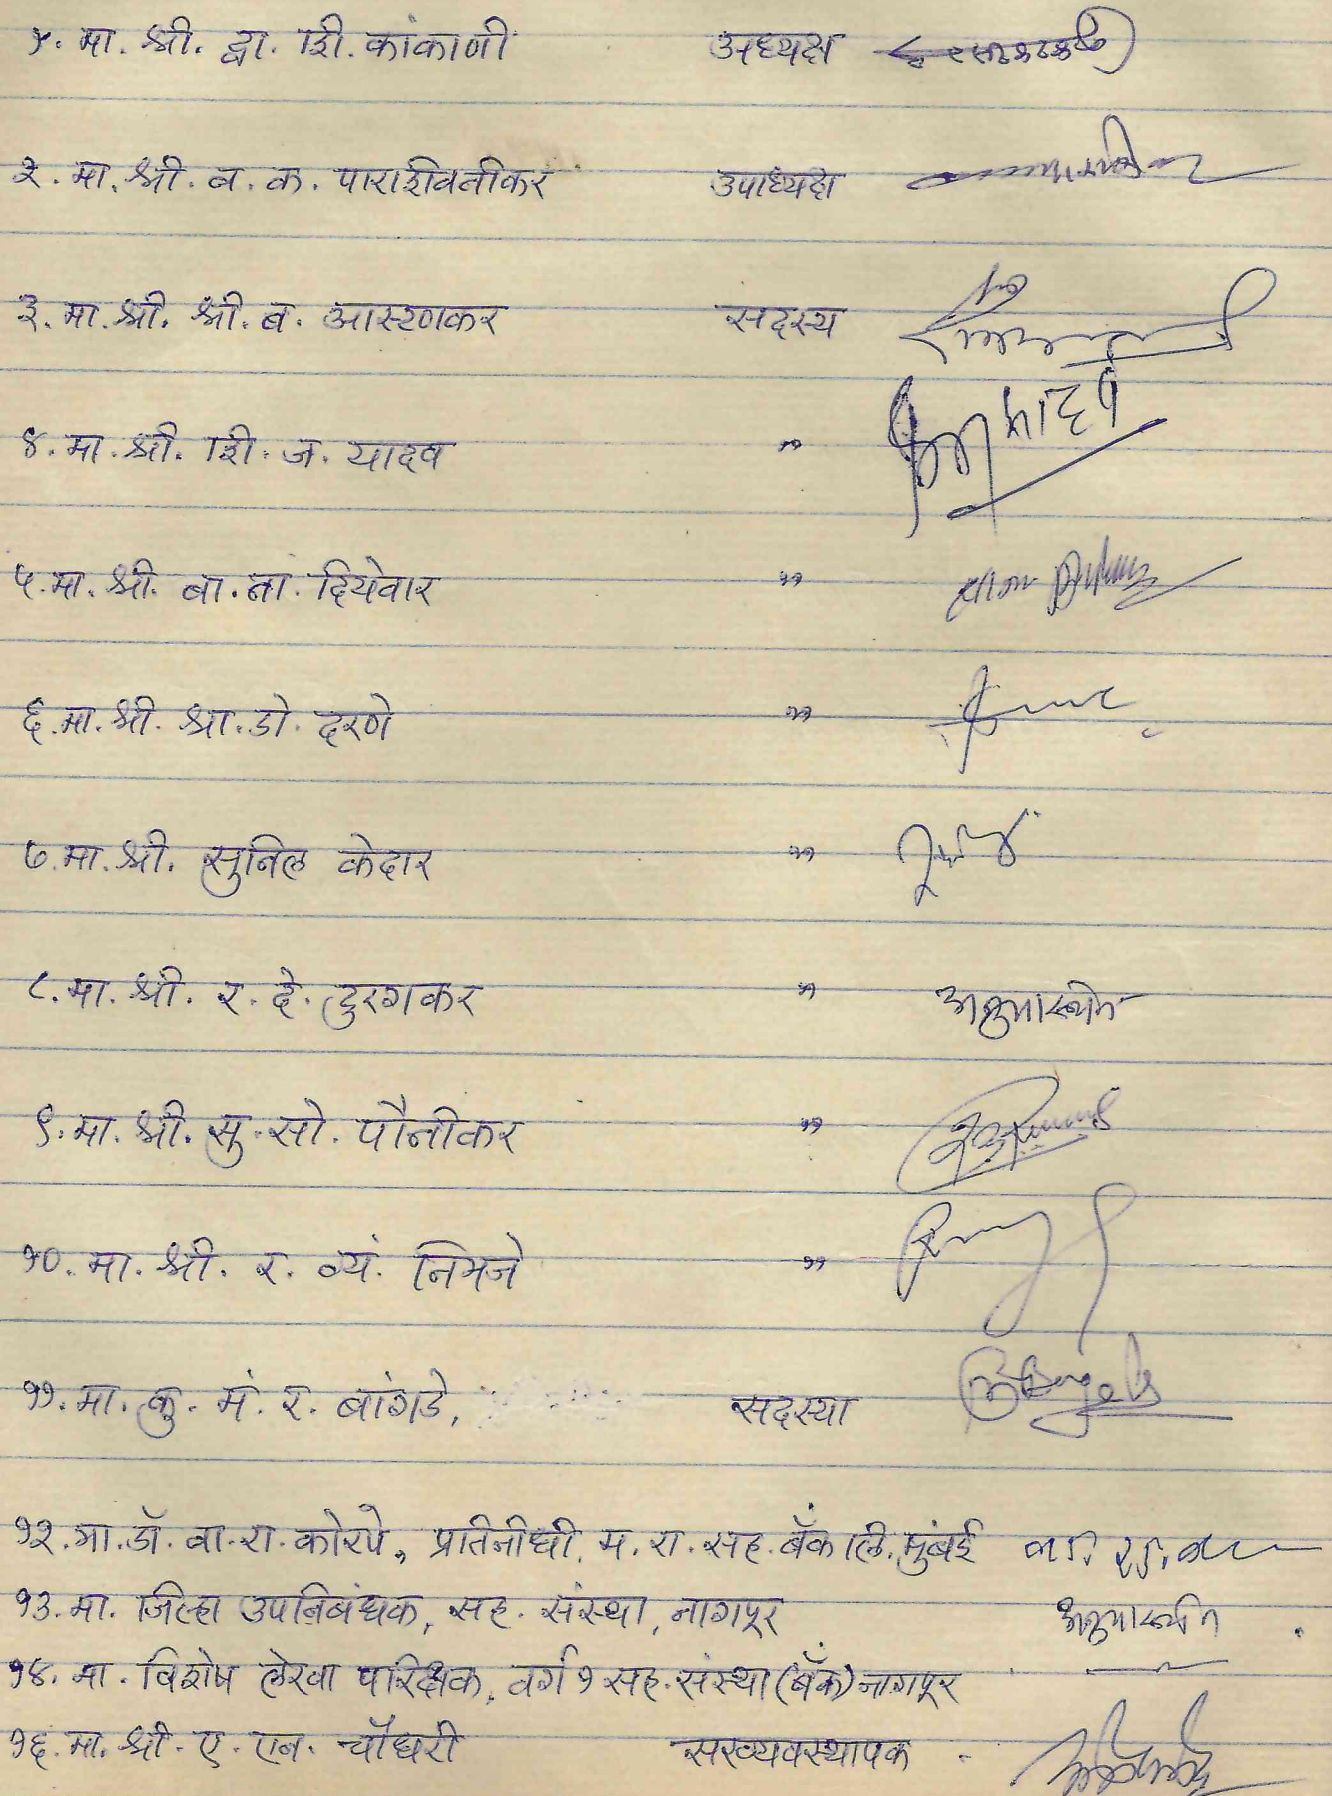 १. मा. श्री. द्वा. शि. कांकाणी अध्यक्ष
२. मा. श्री. व. क. पाराशीवनीकर उपाध्यक्ष
३. मा. श्री. श्री. ब. आस्टणकर सदस्य
४. मा. श्री. शि. ज. यादव "
५. मा. श्री. बा. ना. दियेवार "
६. मा. श्री. श्रा. डो. दरणे "
७. मा. श्री. सुनिल केदार "
८. मा. श्री. र. दे. दुरगकर " अनुपास्थित
९. मा. श्री. सु. सो. पौनीकर "
१०. मा. श्री. र. व्यं. निमजे "
११. मा. कु. मं. र. बांगडे, सदस्या
१२. मा. डॉ. वा. रा. कोरपे, प्रतिनीधी, म. रा. सह. बँक लि. मुंबई
१३. मा. जिल्हा उपनिबंधक, सह. संस्था, नागपूर अनुपास्थित
१४. मा. विशेष लेखा परिक्षक, वर्ग १ सह. संस्था (बँक) नागपूर
१६. मा. श्री. ए. एन. चौधरी सरव्यवस्थापक